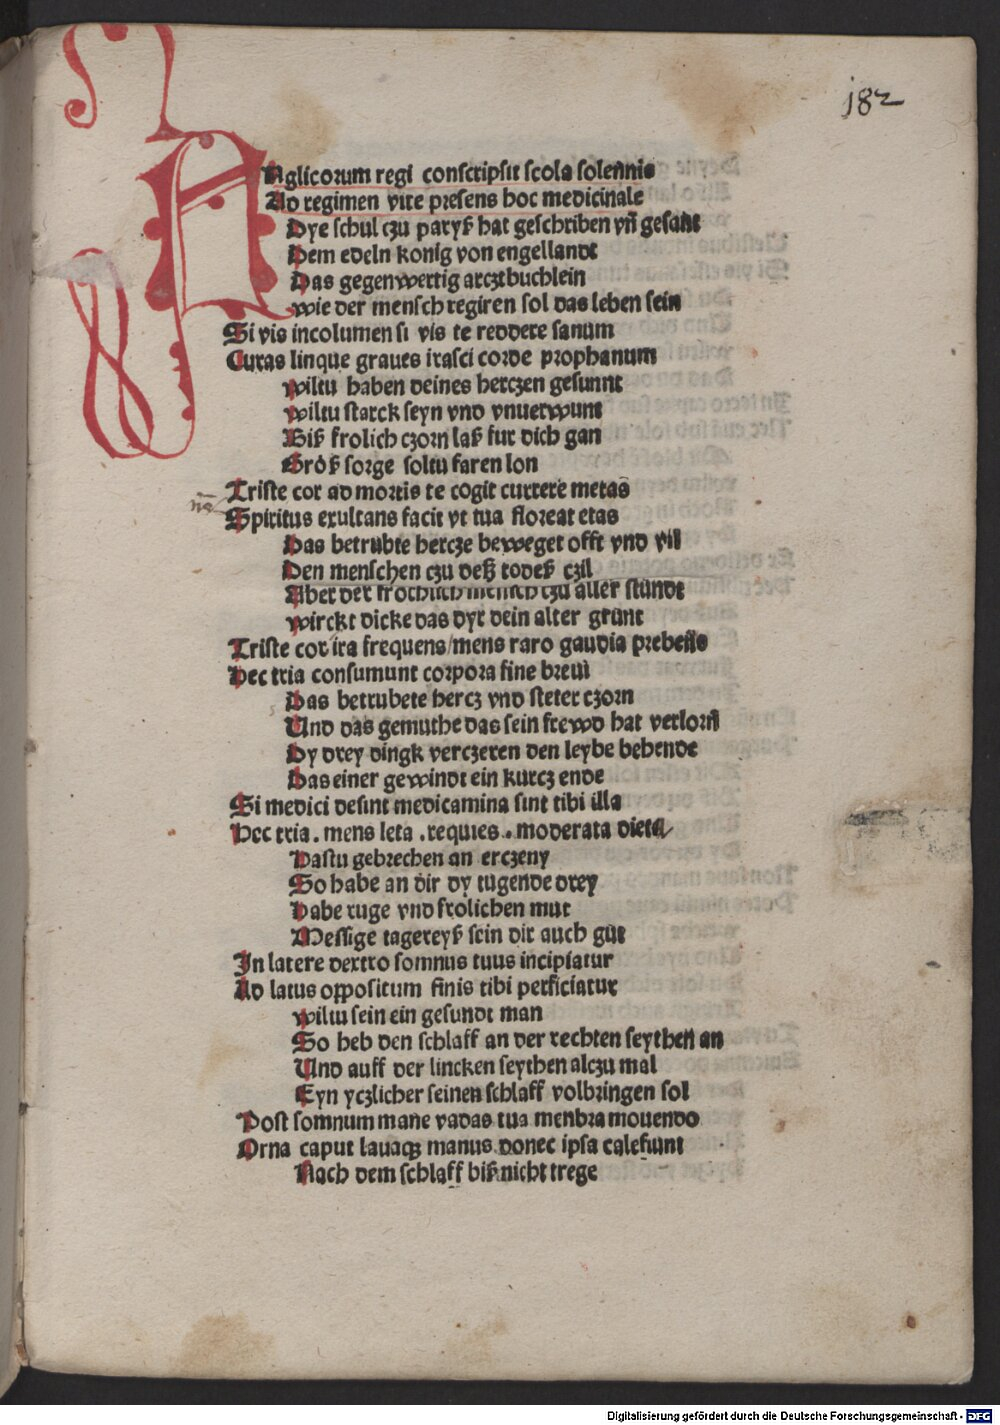 182
ANglicorum regi conscripsit scola solennis
Ad regimen vite presens hoc medicinale
Dye schul czu paryß hat geschriben vn̄ gesant
Dem edeln konig von engellandt
Das gegenwertig arcztbuchlein
wie der mensch regiren sol das leben sein
Si vis incolumen si vis te reddere sanum
Curas linque graues irasci corde prophanum
wiltu haben deines herczen gesunnt
wiltu starck seyn vnd vnuerwunt
Biß frolich czorn laß fur dich gan
Groͤß sorge soltu faren lon
Triste cor ad mortis te cogit currere metas
Spiritus exultans facit vt tua floreat etas
Das betrubte hercze beweget offt vnd vil
Den menschen czu deß todeß czil
Aber der frochlich mensch czu aller stundt
wirckt dicke das dyr dein alter grunt
Triste cor ira frequens/mens raro gaudia prebens
Hec tria consumunt corpora fine breui
Das betrubete hercz vnd steter czorn
Und das gemuthe das sein frewd hat verlorn̄
Dy drey dingk verczeren den leybe behende
Das einer gewindt ein kurcz ende
Si medici desint medicamina sint tibi illa
Hec tria . mens leta . requies . moderata dieta
Hastu gebrechen an erczeny
So habe an dir dy tugende drey
Habe ruge vnd frolichen mut
Messige tagereyß sein dir auch gut
In latere dextro somnus tuus incipiatur
Ad latus oppositum finis tibi perficiatur
wiltu sein ein gesundt man
So heb den schlaff an der rechten seythen an
Und auff der lincken seythen alczu mal
Eyn yczlicher seinen schlaff volbringen sol
Post somnum mane vadas tua menbra mouendo
Orna caput lauaqȝ manus donec ipsa calefiunt
Nach dem schlaff biß nicht trege
Digitalisierung gefördert durch die Deutsche Forschungsgemeinschaft - DFG